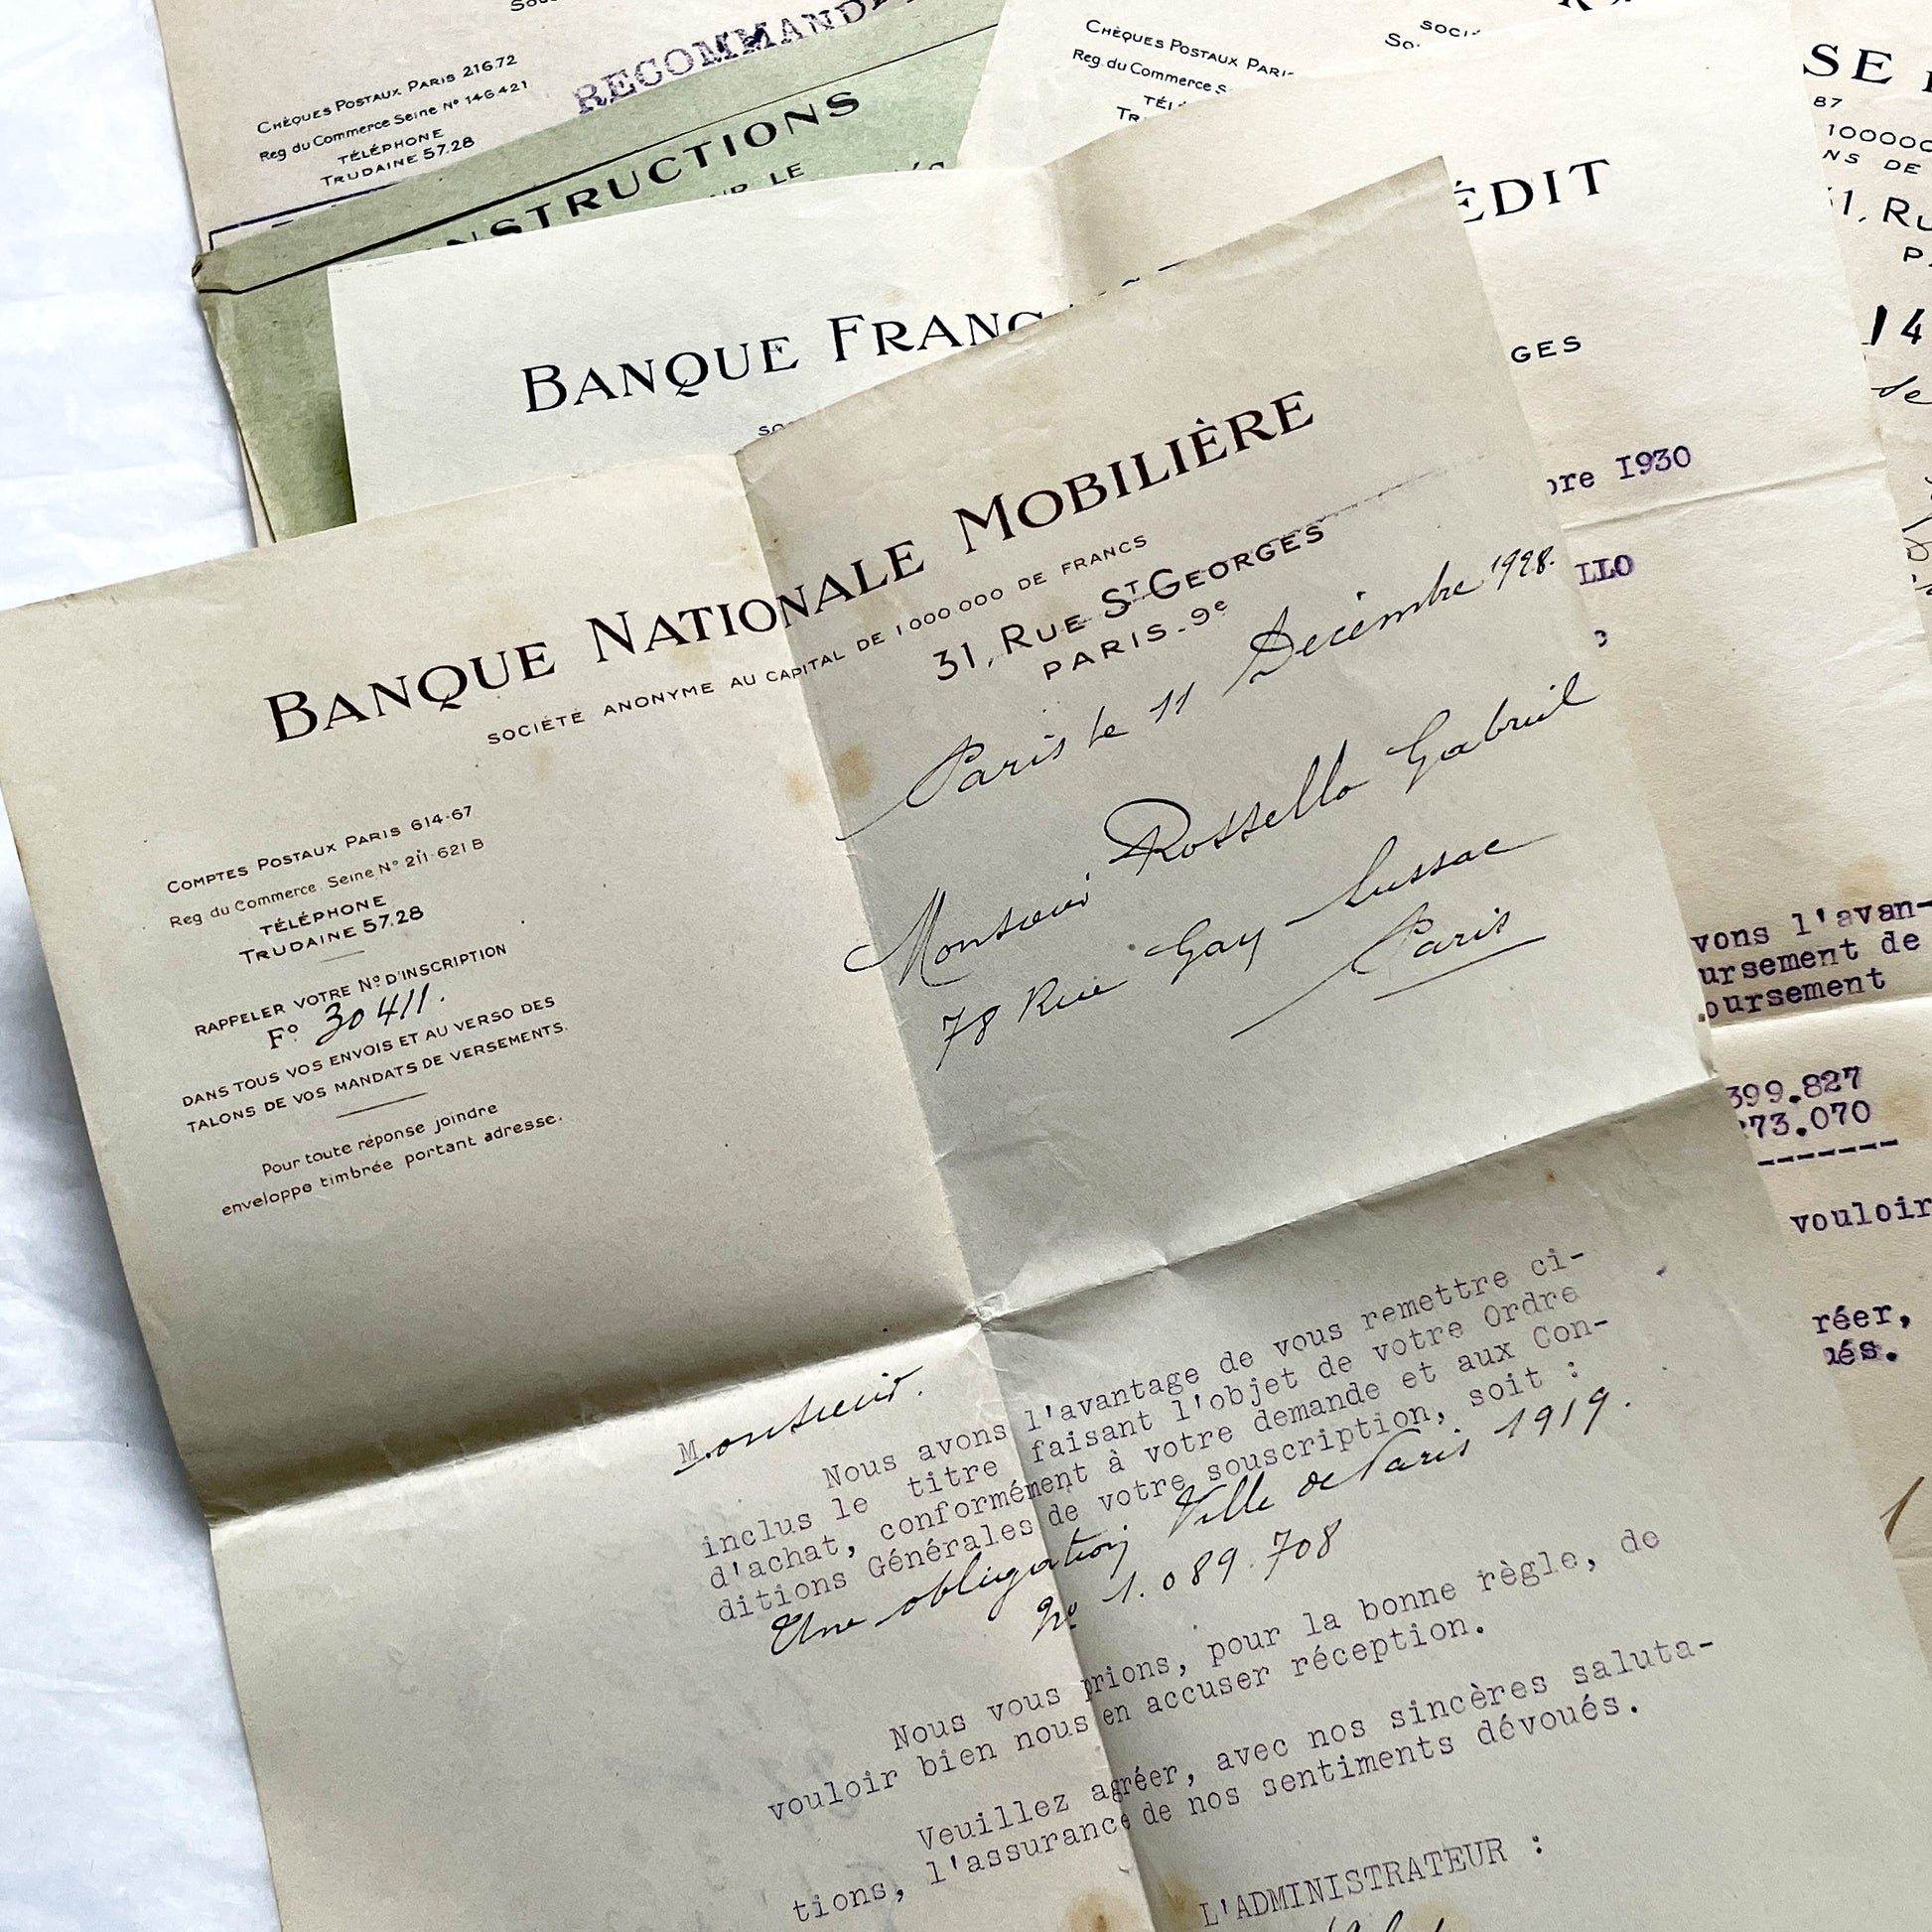 CHÈQUES POSTAUX PARIS 216.72
Reg. du Commerce Seine N° 146.421
TÉLÉPHONE
TRUDAINE 57.28
RECOMMANDÉ
INSTRUCTIONS
LE
CHÈQUES POSTAUX PARI
Reg. du Commerce S
TÉL
TR
SE
87
10000
NS DE
1, RU
P
14
ÉDIT
GES
bre 1930
LLO
3
vons l'avan-
ursement de
oursement
399.827
73.070
-------
vouloir
réer,
ués.
BANQUE FRANÇ
BANQUE NATIONALE MOBILIÈRE
SOCIÉTÉ ANONYME AU CAPITAL DE 1000000 DE FRANCS
31, RUE ST GEORGES
PARIS-9e
Paris le 11 Décembre 1928.
Monsieur Rossello Gabriel
78 Rue Gay Lussac
Paris
COMPTES POSTAUX PARIS 614-67
Reg du Commerce Seine N° 211-621 B
TÉLÉPHONE
TRUDAINE 57.28
RAPPELER VOTRE N° D'INSCRIPTION
F° 30411.
DANS TOUS VOS ENVOIS ET AU VERSO DES
TALONS DE VOS MANDATS DE VERSEMENTS.
Pour toute réponse joindre
enveloppe timbrée portant adresse.
M.onsieur.
Nous avons l'avantage de vous remettre ci-
inclus le titre faisant l'objet de votre Ordre
d'achat, conformément à votre demande et aux Con-
ditions Générales de votre souscription, soit :
Une obligation Ville de Paris 1919.
N° 1.089.708
Nous vous prions, pour la bonne règle, de
vouloir bien nous en accuser réception.
Veuillez agréer, avec nos sincères saluta-
tions, l'assurance de nos sentiments dévoués.
L'ADMINISTRATEUR :